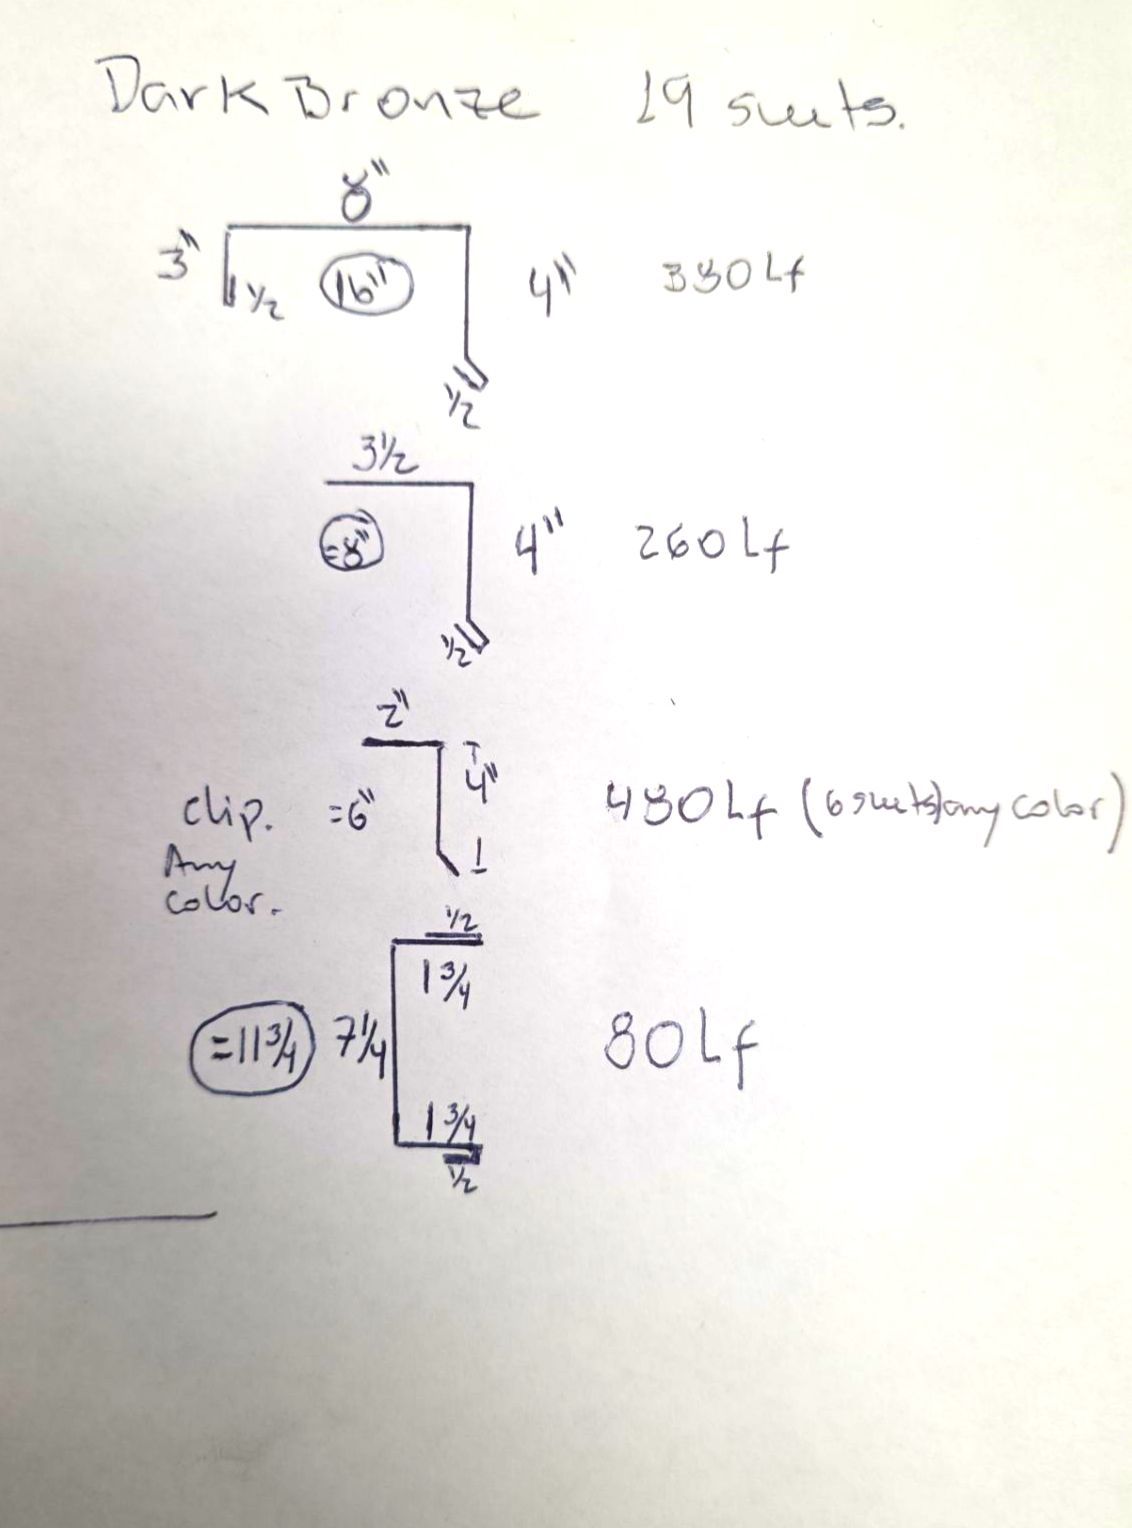 Dark Bronze 19 sheets.
8"
3" 1/2 16" 4" 330 Lf
1/2
3 1/2
=8" 4" 260 Lf
1/2
2"
clip. =6" 4" 480 Lf (6 sheets) any color)
Any
color.
1
1/2
1 3/4
=11 3/4 7 1/4 80 Lf
1 3/4
1/2